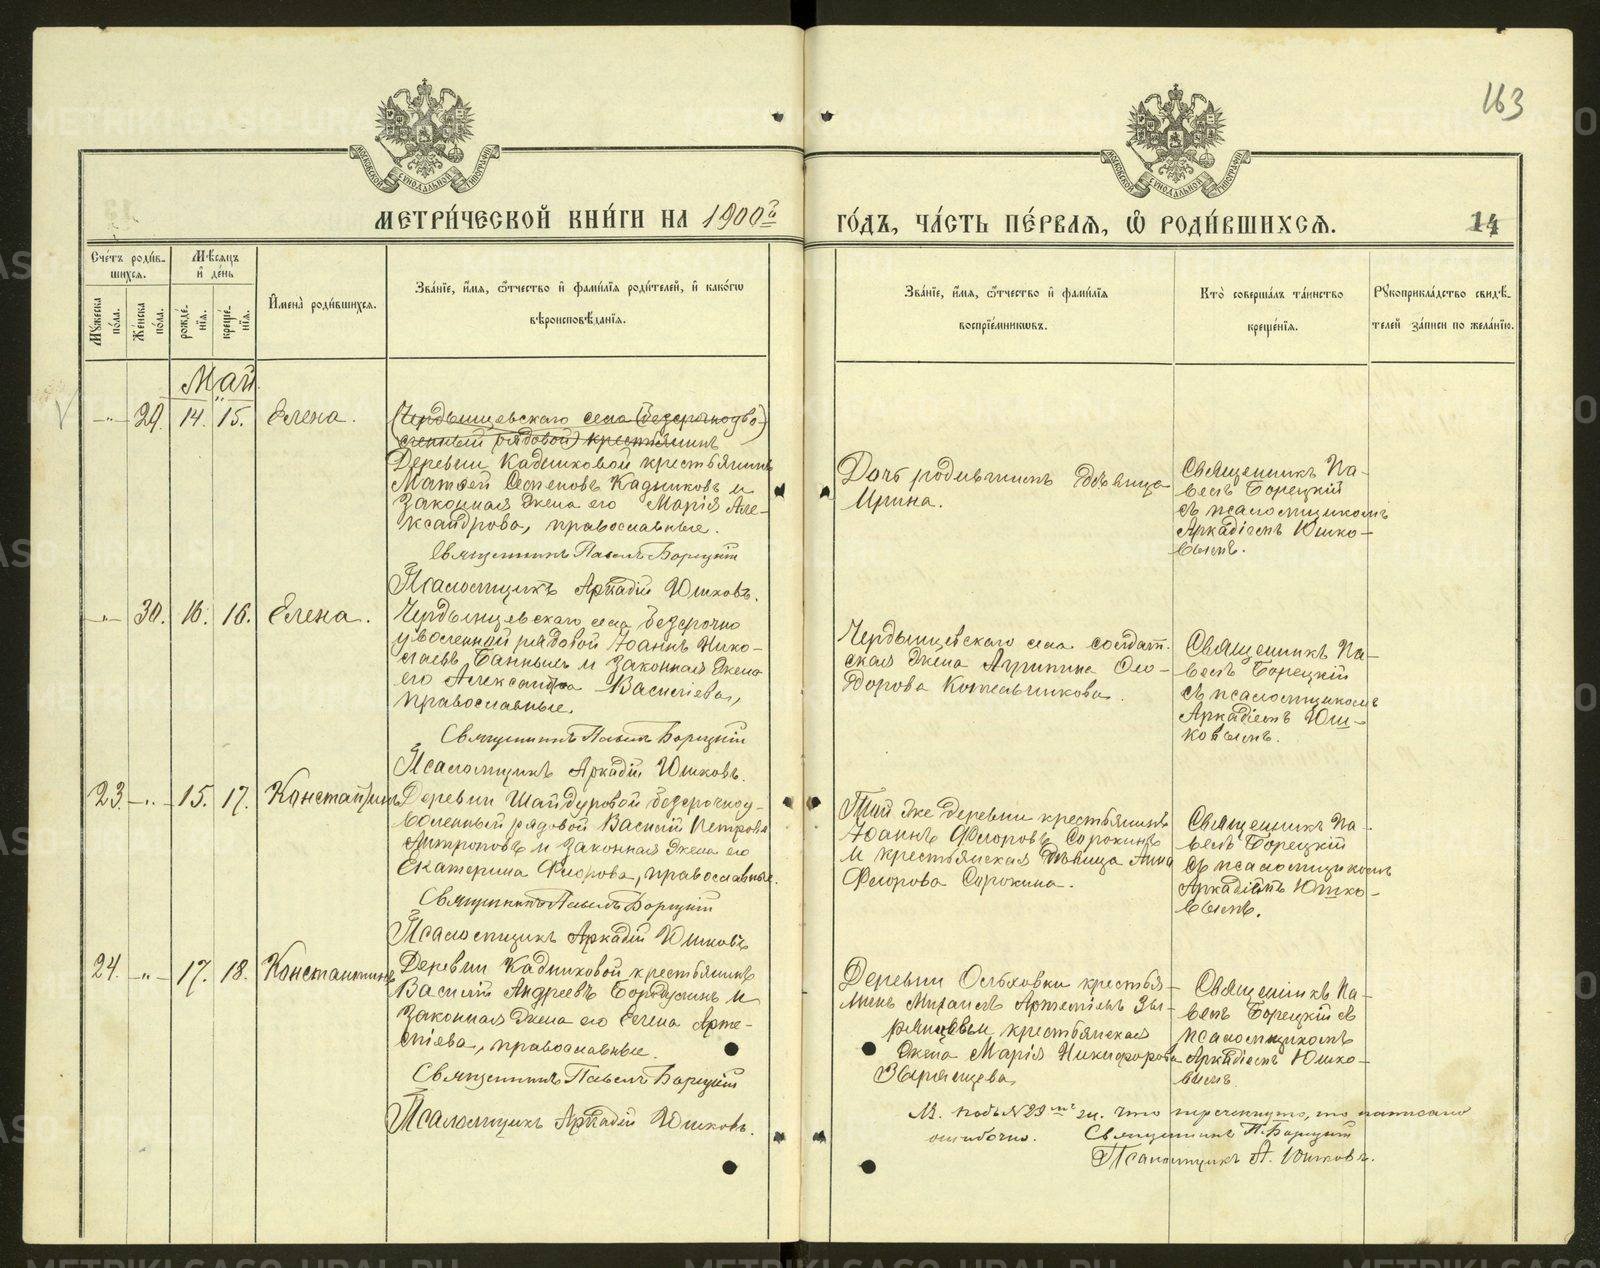 163
МОСКОВСКОЙ СѴНОДАЛЬНОЙ ТИПОГРАФІИ
МОСКОВСКОЙ СѴНОДАЛЬНОЙ ТИПОГРАФІИ
МЕТРИ́ЧЕСКОЙ КНИ́ГИ НА 1900й
ГО́ДЪ, ЧА́СТЬ ПЕ́РВАЯ, Ѽ РОДИ́ВШИХСЯ.
14
Сче́тъ роди́в-
шихся.
Мꙋ́жеска по́ла.
Же́нска по́ла.
Мѣ́сяцъ
и҆ де́нь
рожде́-
нїя.
креще́-
нїя.
И҆мена̀ роди́вшихся.
Зва́нїе, и҆́мя, ѻ҆́тчество и҆ фами́лїя роди́телей, и҆ како́гѡ
вѣроисповѣ́данїя.
Зва́нїе, и҆́мя, ѻ҆́тчество и҆ фами́лїя
воспрїе́мникѡвъ.
Кто̀ соверша́лъ та́инство
креще́нїя.
Рꙋкоприкла́дство свидѣ́-
телей за́писи по жела́нїю.
Май
-"- 29. 14. 15. Елена.
(Чердынцевскаго села (безсрочноуво-
ленный рядовой) крестьянинъ
Деревни Кадниковой крестьянинъ
Матѳей Степановъ Кадниковъ и
законная жена его Марія Але-
ксандрова, православные.
Священникъ Павелъ Борецкій
Псаломщикъ Аркадій Юшковъ.
Дочь родившихъ дѣвица
Ирина.
Священникъ Па-
велъ Борецкій
съ псаломщикомъ
Аркадіемъ Юшко-
вымъ.
-"- 30. 16. 16. Елена.
Чердынцевскаго села безсрочно
уволенной рядовой Іоаннъ Нико-
лаевъ Банныхъ и законная жена
его Александра Василіева,
православные.
Священникъ Павелъ Борецкій
Псаломщикъ Аркадій Юшковъ.
Чердынцевскаго села солдат-
ская жена Агрипина Ѳео-
дорова Котельникова.
Священникъ Па-
велъ Борецкій
съ псаломщикомъ
Аркадіемъ Юш-
ковымъ.
23. -"- 15. 17. Константинъ
Деревни Шайдуровой безсрочноу-
воленный рядовой Василій Петровъ
Антроповъ и законная жена его
Екатерина Флорова, православные.
Священникъ Павелъ Борецкій
Псаломщикъ Аркадій Юшковъ
Той же деревни крестьянинъ
Іоаннъ Флоровъ Сорокинъ
и крестьянская дѣвица Анна
Флорова Сорокина.
Священникъ Па-
велъ Борецкій
съ псаломщикомъ
Аркадіемъ Юшко-
вымъ.
24. -"- 17. 18. Константинъ
Деревни Кадниковой крестьянинъ
Василій Андреевъ Бородулинъ и
законная жена его Елена Арте-
міева, православные.
Священникъ Павелъ Борецкій
Псаломщикъ Аркадій Юшковъ.
Деревни Ольховки крестья-
нинъ Михаилъ Артеміевъ Зы-
рянцевъ и крестьянская
жена Марія Никифорова
Зырянцева
Священникъ Па-
велъ Борецкій съ
псаломщикомъ
Аркадіемъ Юшко-
вымъ.
подъ №29 что перечеркнуто, то написано
ошибочно. Священникъ П. Борецкій
Псаломщикъ А. Юшковъ.
METRIKI.GASO-URAL.RU